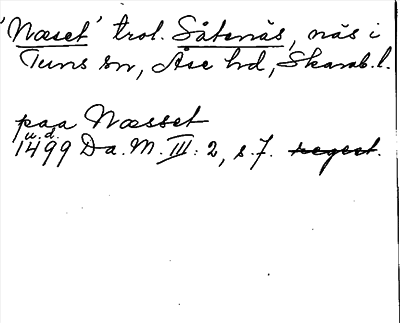 'Næset' trol. Såtenäs, näs i
Tuns sn, Åse hd, Skarab.l.
paa Næsset
u.d.
1499 Da. M. III: 2, s. 7. regest.